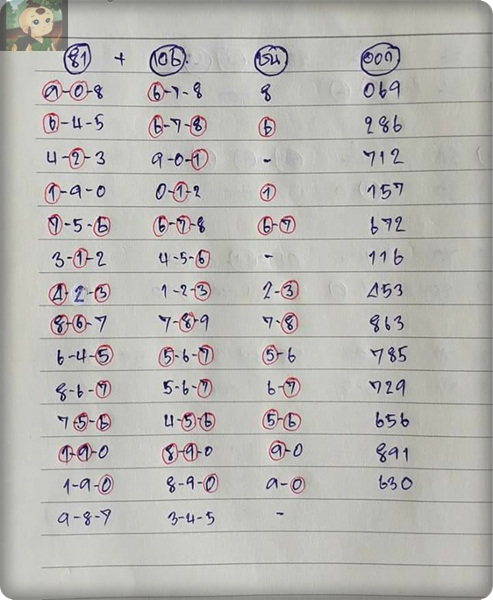 81 + 106: ชน ออก
9-0-8 6-7-8 8 069
6-4-5 6-7-8 6 286
4-2-3 9-0-1 - 712
1-9-0 0-1-2 1 157
7-5-6 6-7-8 6-7 672
3-1-2 4-5-6 - 116
4-2-3 1-2-3 2-3 453
8-6-7 7-8-9 7-8 863
6-4-5 5-6-7 5-6 785
8-6-7 5-6-7 6-7 729
7-5-6 4-5-6 5-6 656
1-9-0 8-9-0 9-0 891
1-9-0 8-9-0 9-0 630
9-8-7 3-4-5 -